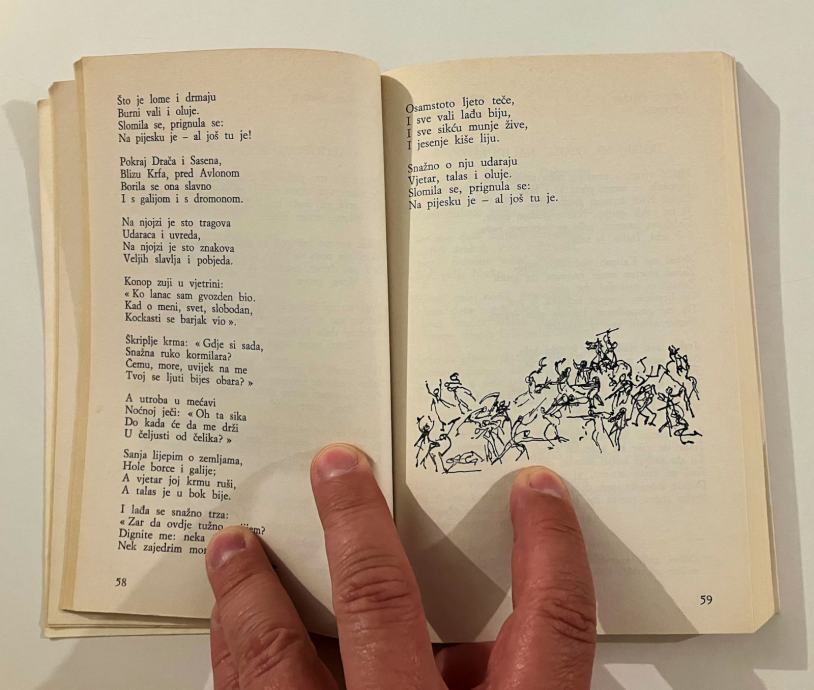 Što je lome i drmaju
Burni vali i oluje.
Slomila se, prignula se:
Na pijesku je – al još tu je!
Pokraj Drača i Sasena,
Blizu Krfa, pred Avlonom
Borila se ona slavno
I s galijom i s dromonom.
Na njojzi je sto tragova
Udaraca i uvreda,
Na njojzi je sto znakova
Veljih slavlja i pobjeda.
Konop zuji u vjetrini:
«Ko lanac sam gvozden bio.
Kad o meni, svet, slobodan,
Kockasti se barjak vio».
Škriplje krma: «Gdje si sada,
Snažna ruko kormilara?
Čemu, more, uvijek na me
Tvoj se ljuti bijes obara?»
A utroba u mećavi
Noćnoj ječi: «Oh ta sika
Do kada će da me drži
U čeljusti od čelika?»
Sanja lijepim o zemljama,
Hole borce i galije;
A vjetar joj krmu ruši,
A talas je u bok bije.
I lađa se snažno trza:
«Zar da ovdje tužno
Dignite me: neka
Nek zajedrim
58
Osamstoto ljeto teče,
I sve vali lađu biju,
I sve sikću munje žive,
I jesenje kiše liju.
Snažno o nju udaraju
Vjetar, talas i oluje.
Slomila se, prignula se:
Na pijesku je – al još tu je.
59